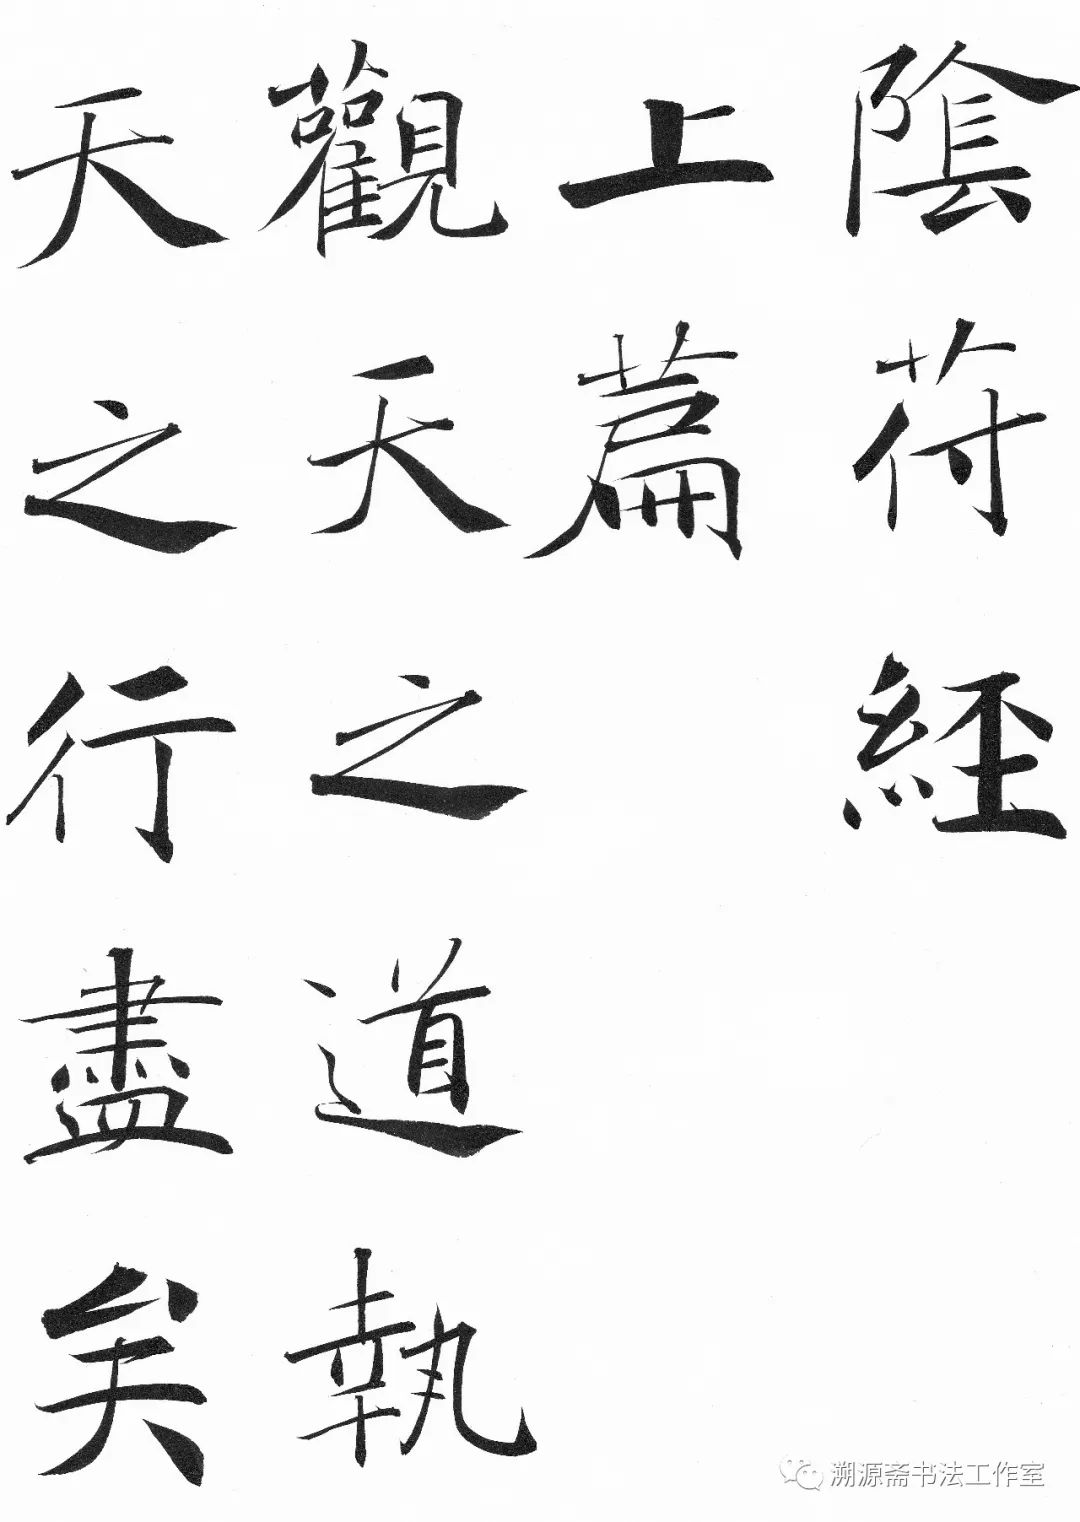 陰符經
上篇
觀天之道執
天之行盡矣
溯源斋书法工作室